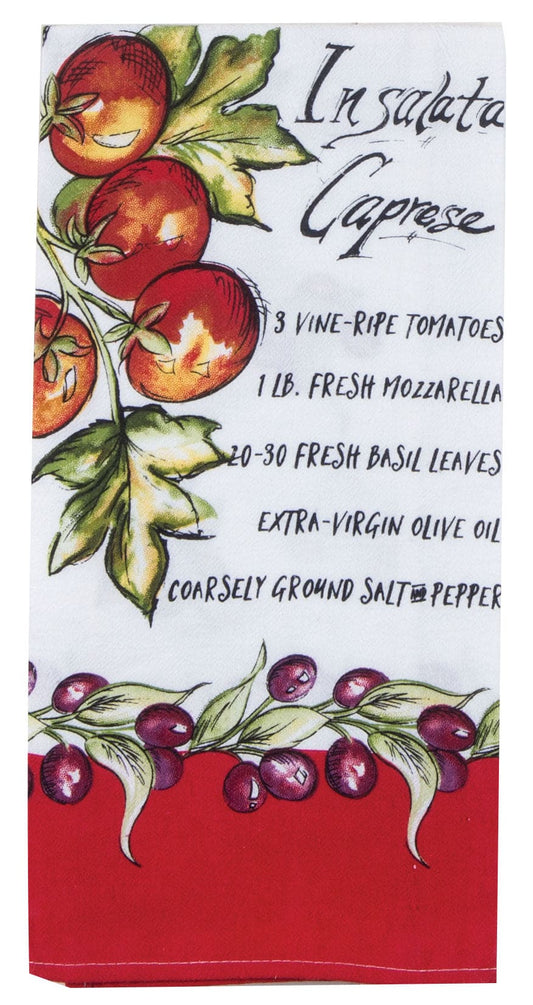 Insalata
Caprese
3 VINE-RIPE TOMATOES
1 LB. FRESH MOZZARELLA
20-30 FRESH BASIL LEAVES
EXTRA-VIRGIN OLIVE OIL
COARSELY GROUND SALT AND PEPPER